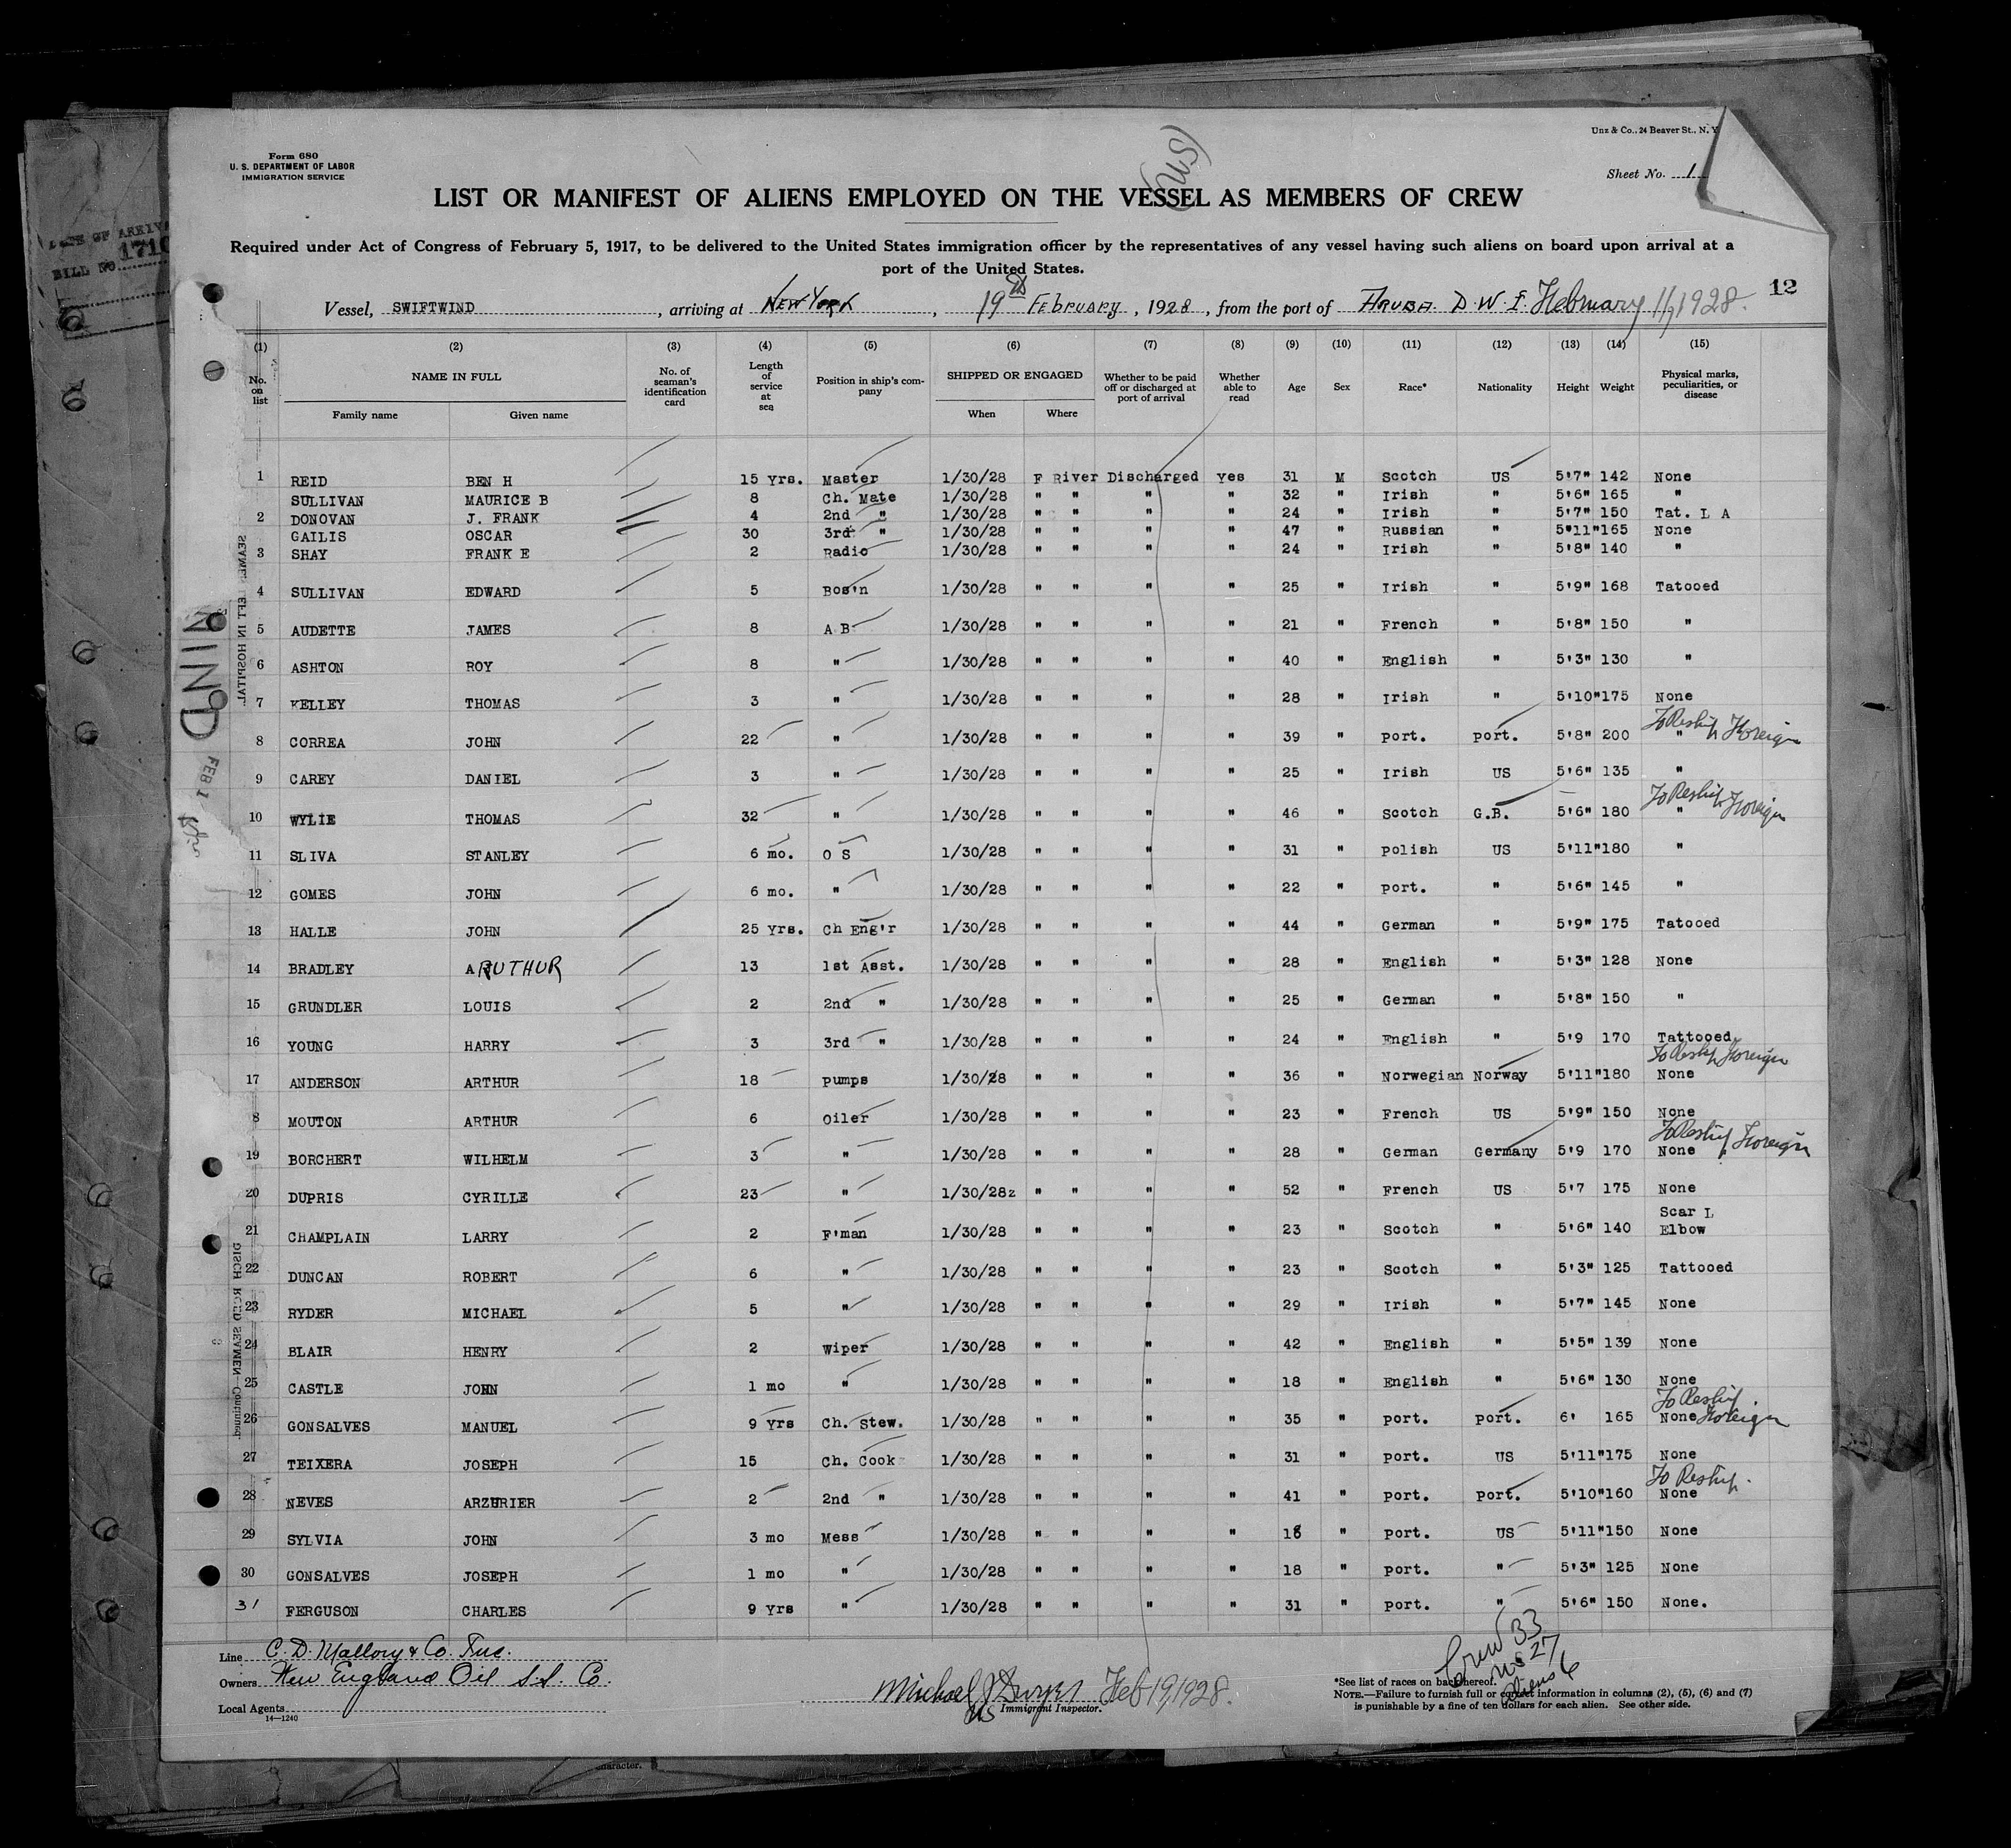 Unz & Co., 24 Beaver St., N. Y.
Form 680
U. S. DEPARTMENT OF LABOR
IMMIGRATION SERVICE
Sheet No. 1
LIST OR MANIFEST OF ALIENS EMPLOYED ON THE VESSEL AS MEMBERS OF CREW
Required under Act of Congress of February 5, 1917, to be delivered to the United States immigration officer by the representatives of any vessel having such aliens on board upon arrival at a
port of the United States.
12
Vessel, SWIFTWIND, arriving at New York, 19th February, 1928, from the port of Aruba. D. W. I. February 11, 1928.
(1) (2) (3) (4) (5) (6) (7) (8) (9) (10) (11) (12) (13) (14) (15)
No. on list NAME IN FULL Family name Given name No. of seaman's identification card Length of service at sea Position in ship's company SHIPPED OR ENGAGED When Where Whether to be paid off or discharged at port of arrival Whether able to read Age Sex Race* Nationality Height Weight Physical marks, peculiarities, or disease
1 REID BEN H 15 Yrs. Master 1/30/28 F River Discharged Yes 31 M Scotch US 5'7" 142 None
SULLIVAN MAURICE B 8 Ch. Mate 1/30/28 " " " " 32 " Irish " 5'6" 165 "
2 DONOVAN J. FRANK 4 2nd " 1/30/28 " " " " 24 " Irish " 5'7" 150 Tat. L A
GAILIS OSCAR 30 3rd " 1/30/28 " " " " 47 " Russian " 5"11"165 None
3 SHAY FRANK E 2 Radio 1/30/28 " " " " 24 " Irish " 5'8" 140 "
4 SULLIVAN EDWARD 5 Bos'n 1/30/28 " " " " 25 " Irish " 5'9" 168 Tatooed
5 AUDETTE JAMES 8 A B 1/30/28 " " " " 21 " French " 5'8" 150 "
6 ASHTON ROY 8 " 1/30/28 " " " " 40 " English " 5'3" 130 "
7 KELLEY THOMAS 3 " 1/30/28 " " " " 28 " Irish " 5'10"175 None
8 CORREA JOHN 22 " 1/30/28 " " " " 39 " Port. Port. 5'8" 200 " To Reship Foreign
9 CAREY DANIEL 3 " 1/30/28 " " " " 25 " Irish US 5'6" 135 "
10 WYLIE THOMAS 32 " 1/30/28 " " " " 46 " Scotch G.B. 5'6" 180 " To Reship Foreign
11 SLIVA STANLEY 6 mo. O S 1/30/28 " " " " 31 " Polish US 5'11"180 "
12 GOMES JOHN 6 mo. " 1/30/28 " " " " 22 " Port. " 5'6" 145 "
13 HALLE JOHN 25 Yrs. Ch Eng'r 1/30/28 " " " " 44 " German " 5'9" 175 Tatooed
14 BRADLEY ARUTHUR 13 1st Asst. 1/30/28 " " " " 28 " English " 5'3" 128 None
15 GRUNDLER LOUIS 2 2nd " 1/30/28 " " " " 25 " German " 5'8" 150 "
16 YOUNG HARRY 3 3rd " 1/30/28 " " " " 24 " English " 5'9 170 Tattooed
17 ANDERSON ARTHUR 18 Pumps 1/30/28 " " " " 36 " Norwegian Norway 5'11"180 None To Reship Foreign
8 MOUTON ARTHUR 6 Oiler 1/30/28 " " " " 23 " French US 5'9" 150 None
19 BORCHERT WILHELM 3 " 1/30/28 " " " " 28 " German Germany 5'9 170 None To Reship Foreign
20 DUPRIS CYRILLE 23 " 1/30/28z " " " " 52 " French US 5'7 175 None
21 CHAMPLAIN LARRY 2 F'man 1/30/28 " " " " 23 " Scotch " 5'6" 140 Scar L Elbow
22 DUNCAN ROBERT 6 " 1/30/28 " " " " 23 " Scotch " 5'3" 125 Tattooed
23 RYDER MICHAEL 5 " 1/30/28 " " " " 29 " Irish " 5'7" 145 None
24 BLAIR HENRY 2 Wiper 1/30/28 " " " " 42 " English " 5'5" 139 None
25 CASTLE JOHN 1 mo " 1/30/28 " " " " 18 " English " 5'6" 130 None
26 GONSALVES MANUEL 9 Yrs Ch. Stew. 1/30/28 " " " " 35 " Port. Port. 6' 165 None To Reship Foreign
27 TEIXERA JOSEPH 15 Ch. Cook 1/30/28 " " " " 31 " Port. US 5'11"175 None
28 NEVES ARZURIER 2 2nd " 1/30/28 " " " " 41 " Port. Port. 5'10"160 None To Reship.
29 SYLVIA JOHN 3 mo Mess 1/30/28 " " " " 18 " Port. US 5'11"150 None
30 GONSALVES JOSEPH 1 mo " 1/30/28 " " " " 18 " Port. " 5'3" 125 None
31 FERGUSON CHARLES 9 Yrs " 1/30/28 " " " " 31 " Port. " 5'6" 150 None.
Line C. D. Mallory & Co. Inc.
Owners New England Oil S.S. Co.
Local Agents
14—1240
Michael J Dwyer Feb 19, 1928.
Immigrant Inspector.
Crew 33
US 27
Aliens 6
*See list of races on back hereof.
NOTE.—Failure to furnish full or correct information in columns (2), (5), (6) and (7)
is punishable by a fine of ten dollars for each alien. See other side.
BILL NO. 1710
DISCHARGED SEAMEN—Continued.